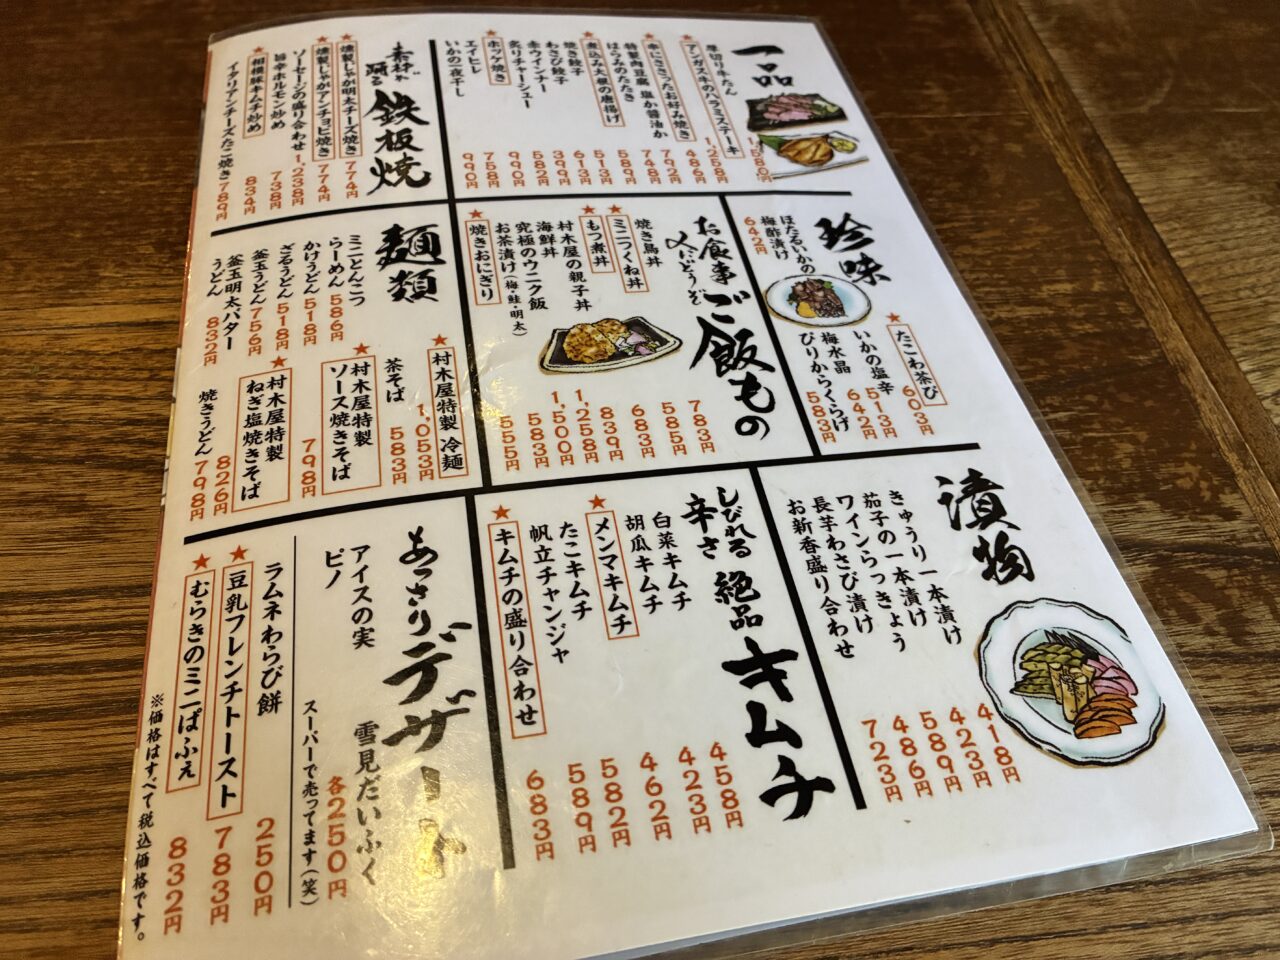 一品
厚切り牛たん 1,580円
★アンガス牛のハラミステーキ 1,258円
★串にささったお好み焼き 486円
特製肉豆腐 塩か醤油か 792円
はらみのたたき 748円
★煮込み大根の唐揚げ 589円
焼き餃子 513円
わさび餃子 613円
赤ウインナー 399円
炙りチャーシュー 582円
★ホッケ焼き 990円
エイヒレ 758円
いかの一夜干し 990円
素材が踊る 鉄板焼
★燻製じゃが明太チーズ焼き 774円
★燻製じゃがアンチョビ焼き 774円
ソーセージの盛り合わせ 1,238円
旨辛ホルモン炒め 738円
★相模豚キムチ炒め 834円
イタリアンチーズたこ焼き 789円
珍味
ほたるいかの
梅酢漬け 642円
★たこわ茶び 603円
いかの塩辛 513円
梅水晶 642円
ぴりからくらげ 583円
お食事〆にどうぞ ご飯もの
焼き鳥丼 783円
★ミニつくね丼 585円
★もつ煮丼 683円
村木屋の親子丼 839円
海鮮丼 1,258円
究極のウニク飯 1,500円
お茶漬け(梅・鮭・明太) 583円
★焼きおにぎり 555円
麺類
ミニとんこつ
らーめん 586円
かけうどん 518円
ざるうどん 518円
釜玉うどん 756円
釜玉明太バター
うどん 832円
★村木屋特製 冷麺 1,053円
茶そば 583円
★村木屋特製
ソース焼きそば 798円
★村木屋特製
ねぎ塩焼きそば 826円
焼きうどん 798円
漬物
きゅうり一本漬け 418円
茄子の一本漬け 423円
ワインらっきょう 589円
長芋わさび漬け 486円
お新香盛り合わせ 723円
しびれる辛さ 絶品 キムチ
白菜キムチ 458円
胡瓜キムチ 423円
★メンマキムチ 462円
たこキムチ 582円
帆立チャンジャ 589円
★キムチの盛り合わせ 683円
あっさりデザート
雪見だいふく
アイスの実
ピノ
各250円
スーパーで売ってます(笑)
ラムネわらび餅 250円
★豆乳フレンチトースト 783円
★むらきのミニぱふぇ 832円
※価格はすべて税込価格です。